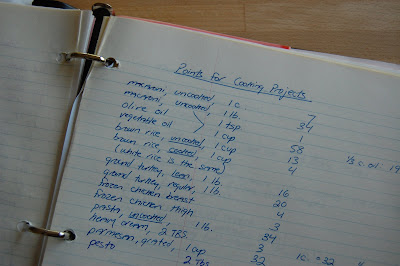 Points for Cooking Projects
macaroni, uncooked, 1 c. 7
macaroni, uncooked, 1 lb. 34
olive oil 1 tsp 1
vegetable oil 1 cup 58
brown rice, uncooked, 1 cup 13 1/2 c. oil
brown rice, cooked, 1 cup 4
(white rice is the same)
ground turkey, lean, 1 lb. 16
ground turkey, regular, 1 lb. 20
frozen chicken breast 4
frozen chicken thigh 3
pasta, uncooked, 1 lb. 34
heavy cream, 2 TBS. 3 1c. = 32
parmesan, grated, 1 cup 32
pesto 2 Tbs